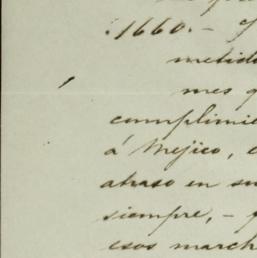 .1660.-
metido
mes
cumplimie
á Mejico,
atraso en su
siempre, -
esos march